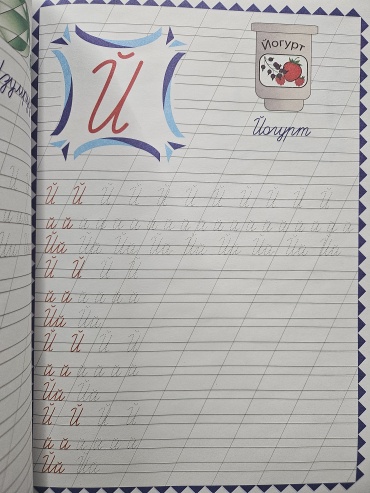 Й
Йогурт
Йогурт
Й Й Й Й Й Й Й Й Й Й Й
й й й й й й й й й й й й й й й й й й й
Йй Йй Йй Йй Йй Йй Йй Йй Йй
Й Й Й Й
й й й й й й
Йй Йй
Й Й Й Й
й й й й й й
Йй Йй
Й Й Й Й
й й й й й й
Йй Йй